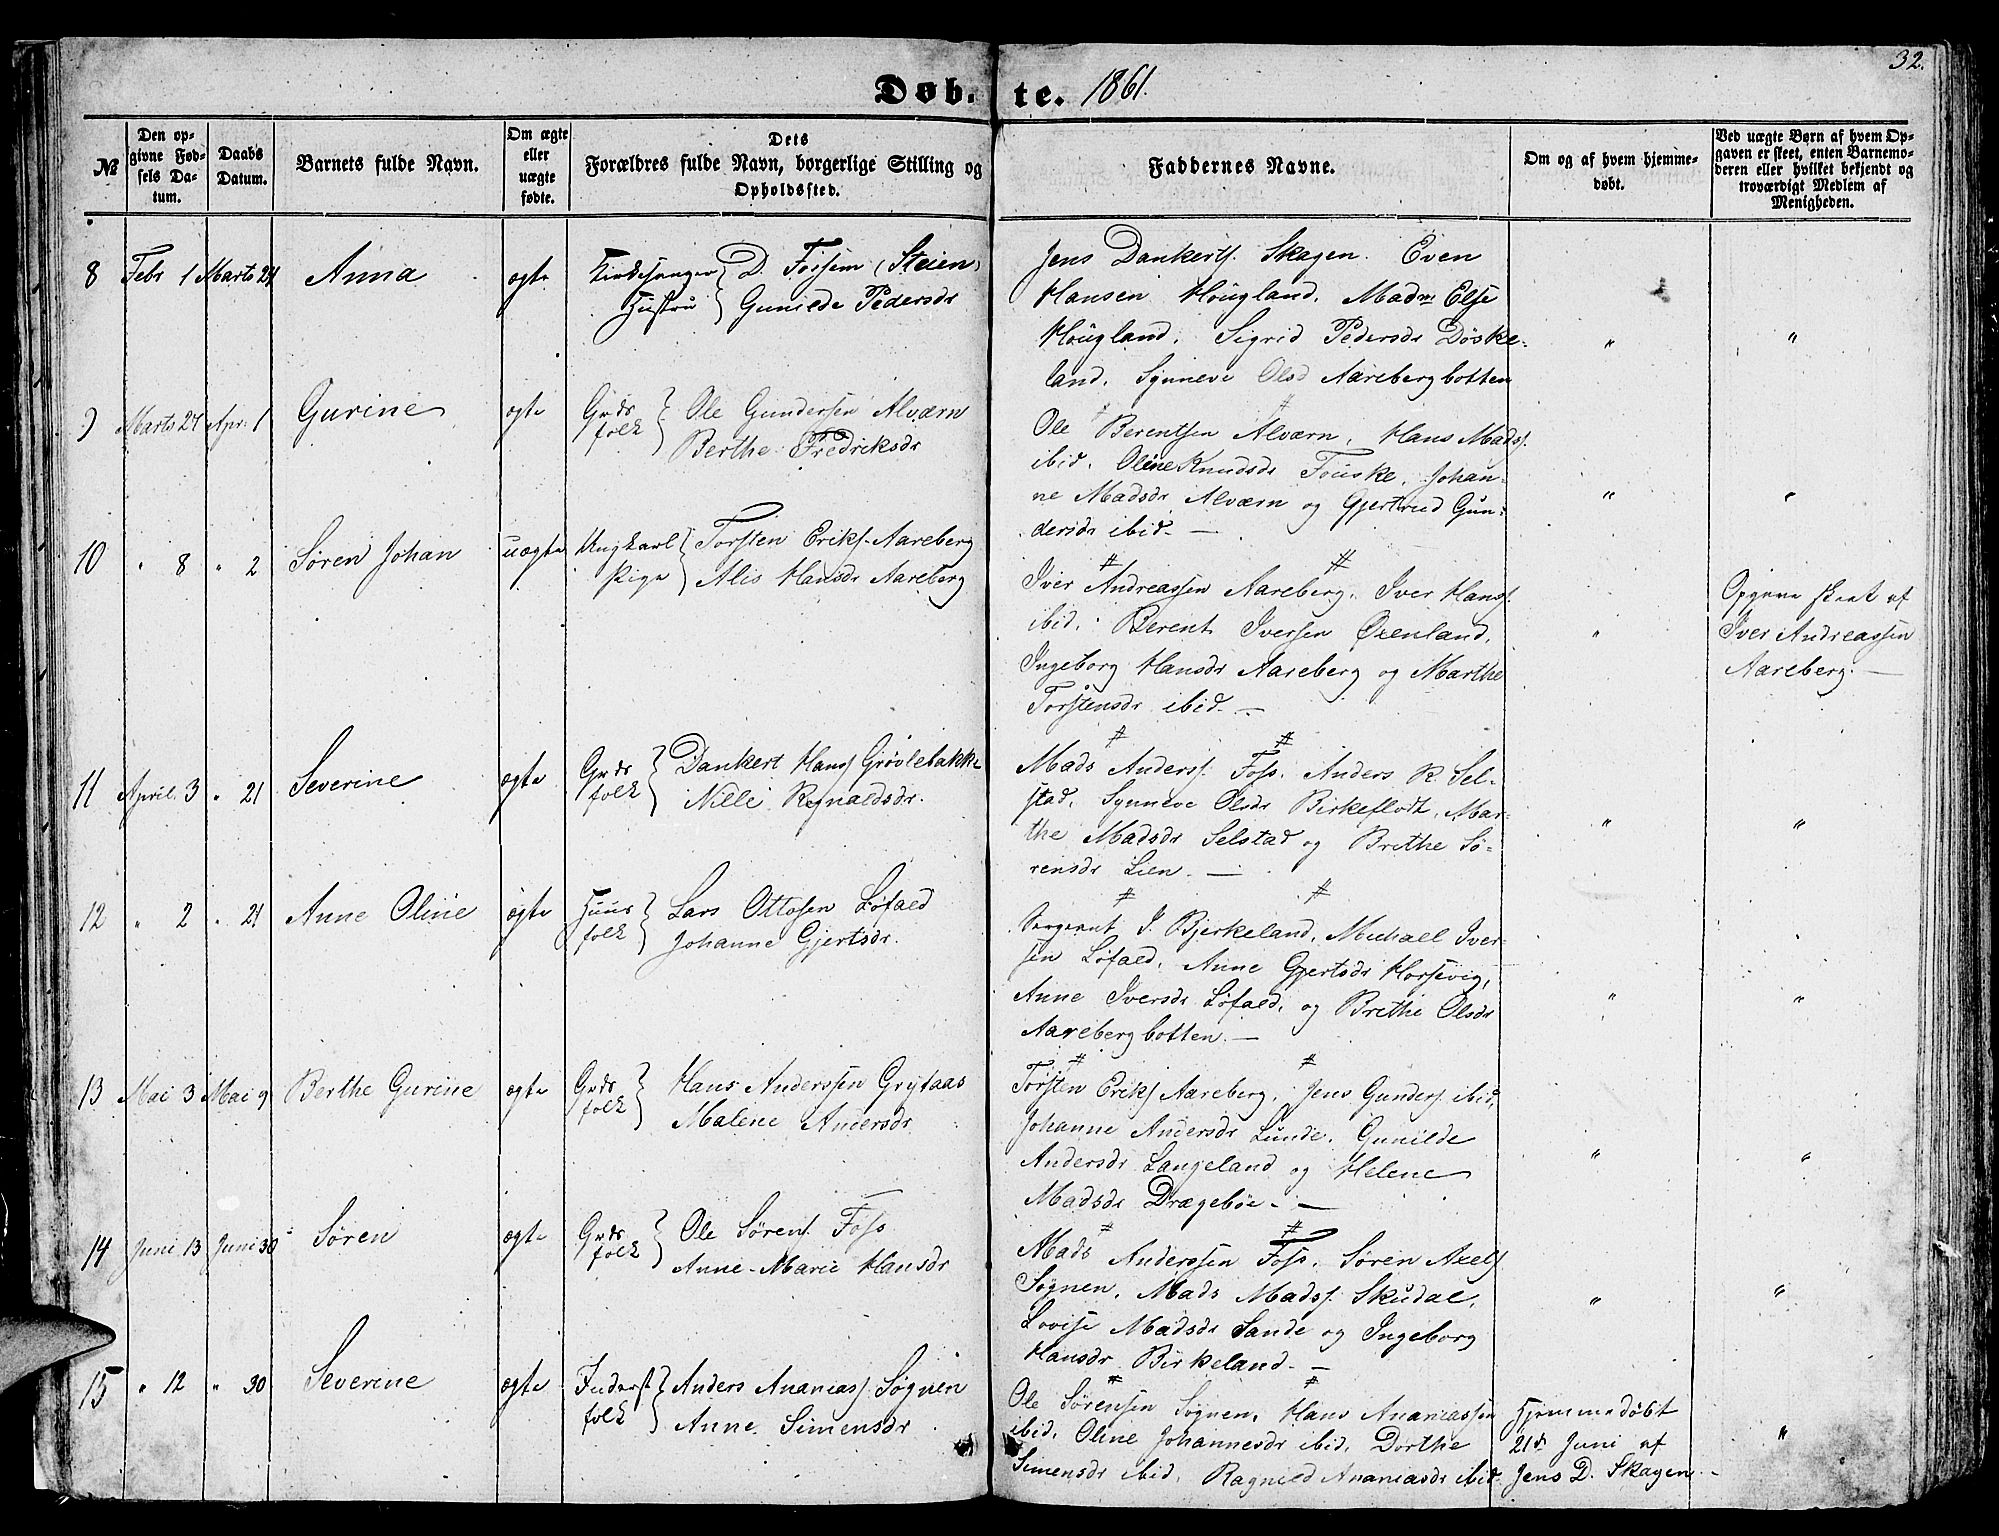 32.
Døb. te. 1861.
No
Den opgivne Fødsels Datum.
Daabs Datum.
Barnets fulde Navn.
Om ægte eller uægte fødte.
Dets Forældres fulde Navn, borgerlige Stilling og Opholdssted.
Faddernes Navne.
Om og af hvem hjemmedøbt.
Ved uægte Børn af hvem Opgaven er skeet, enten Barnemoderen eller hvilket bekjendt og troværdigt Medlem af Menigheden.
8 Febr 1 Marts 24 Anna ægte Kirkesanger D. Forsem (Steien)
Hustru Gunilde Pedersdr
Jens Dankerts. Skagen. Even
Hansen Hougland, Madm Else
Hougland, Sigrid Pedersdr Døske-
land, Synneve Olsd Aarebergbotten
" "
9 Marts 24 Apr. 1 Gurine ægte Grds folk Ole Gundersen Alværn
Berthe Fredriksdr
Ole Berentsen Alværn, Hans Mads.
ibid. Oline Knudsdr Fouske, Johan-
ne Madsdr Alværn og Gjertrud Gun-
dersdr ibid. —
" "
10 " 8 " 2 Søren Johan uægte Ungkarl Torsten Eriks. Aareberg
Pige Alis Hansdr Aareberg
Iver Andreassen Aareberg, Iver Hans.
ibid. Berent Iversen Øxenland,
Ingeborg Hansdr Aareberg og Marthe
Torstensdr ibid. —
"
Opgave skeet af
Iver Andreassen
Aareberg. —
11 April 3 " 21 Severine ægte Grds folk Dankert Hans. Grøvlebakke
Nille Regnaldsdr.
Mads Anderss. Foss. Anders R. Sel-
stad, Synneve Olsdr Birkeflodt, Mar-
the Madsdr Selstad og Brethe Sø-
rensdr Lien. —
" "
12 " 2 " 21 Anne Oline ægte Huus folk Lars Ottosen Løfald
Johanne Gjertsdr.
Sergeant J. Bjerkeland, Michael Iver-
sen Løfald, Anne Gjertsdr Horsevig,
Anne Iversdr Løfald, og Brethe Olsdr
Aarebergbotten. —
" "
13 Mai 3 Mai 9 Berthe Gurine ægte Grds folk Hans Anderssen Grytaas
Malene Andersdr
Torsten Eriks Aareberg, Jens Gunders. ibid,
Johanne Andersdr Lunde, Gunilde
Andersdr Langeland og Helene
Madsdr Drægebøe. —
" "
14 Juni 13 Juni 30 Søren ægte Grds folk Ole Sørens. Foss
Anne-Marie Hansdr
Mads Anderssen Foss, Søren Axels
Søgnen, Mads Mads. Skudal,
Lovise Madsdr Sande og Ingeborg
Hansdr Birkeland. —
" "
15 " 12 " 30 Severine ægte Inderst folk Anders Ananias. Søgnen
Anne Simensdr
Ole Sørensen Søgnen, Hans Ananiassen
ibid, Oline Johannesdr ibid, Dorthe
Simensdr ibid, Ragnild Ananiasdr ibid
Hjemmedøbt
21de Juni af
Jens D. Skagen. —
"